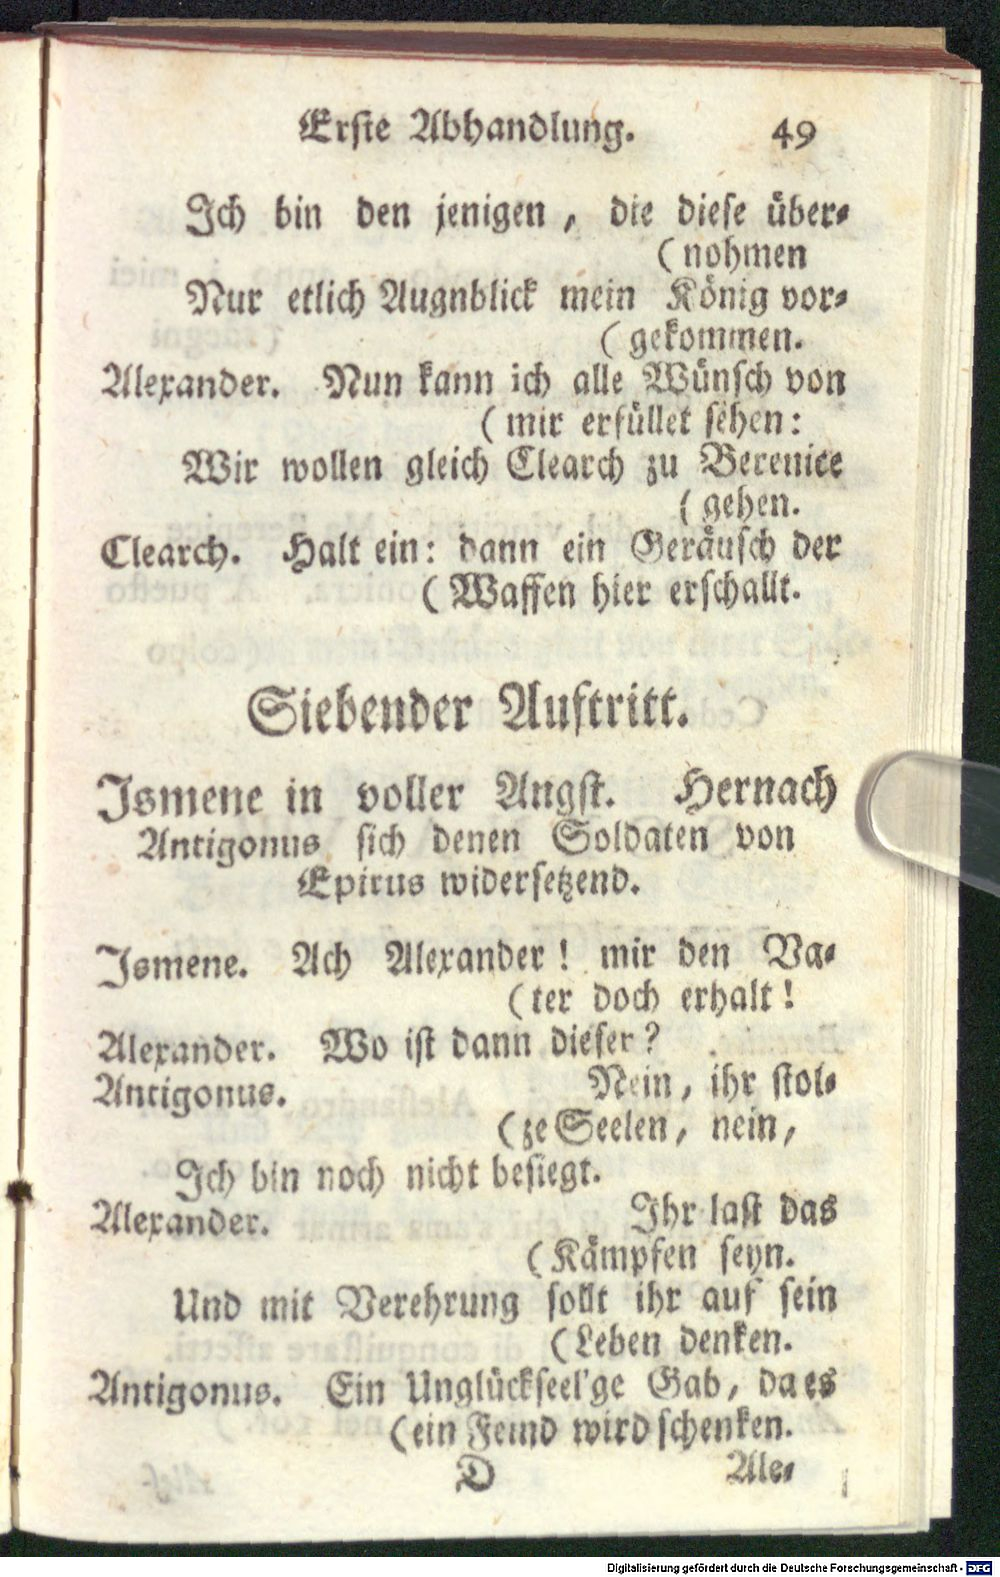 Erste Abhandlung. 49
Ich bin den jenigen, die diese über-
(nohmen
Nur etlich Augnblick mein König vor-
(gekommen.
Alexander. Nun kann ich alle Wünsch von
(mir erfüllet sehen:
Wir wollen gleich Clearch zu Berenice
(gehen.
Clearch. Halt ein: dann ein Geräusch der
(Waffen hier erschallt.
Siebender Auftritt.
Ismene in voller Angst. Hernach
Antigonus sich denen Soldaten von
Epirus widersetzend.
Ismene. Ach Alexander! mir den Va-
(ter doch erhalt!
Alexander. Wo ist dann dieser?
Antigonus. Nein, ihr stol-
(ze Seelen, nein,
Ich bin noch nicht besiegt.
Alexander. Ihr last das
(Kämpfen seyn.
Und mit Verehrung sollt ihr auf sein
(Leben denken.
Antigonus. Ein Unglückseel'ge Gab, da es
(ein Feind wird schenken.
D Ale-
Digitalisierung gefördert durch die Deutsche Forschungsgemeinschaft - DFG